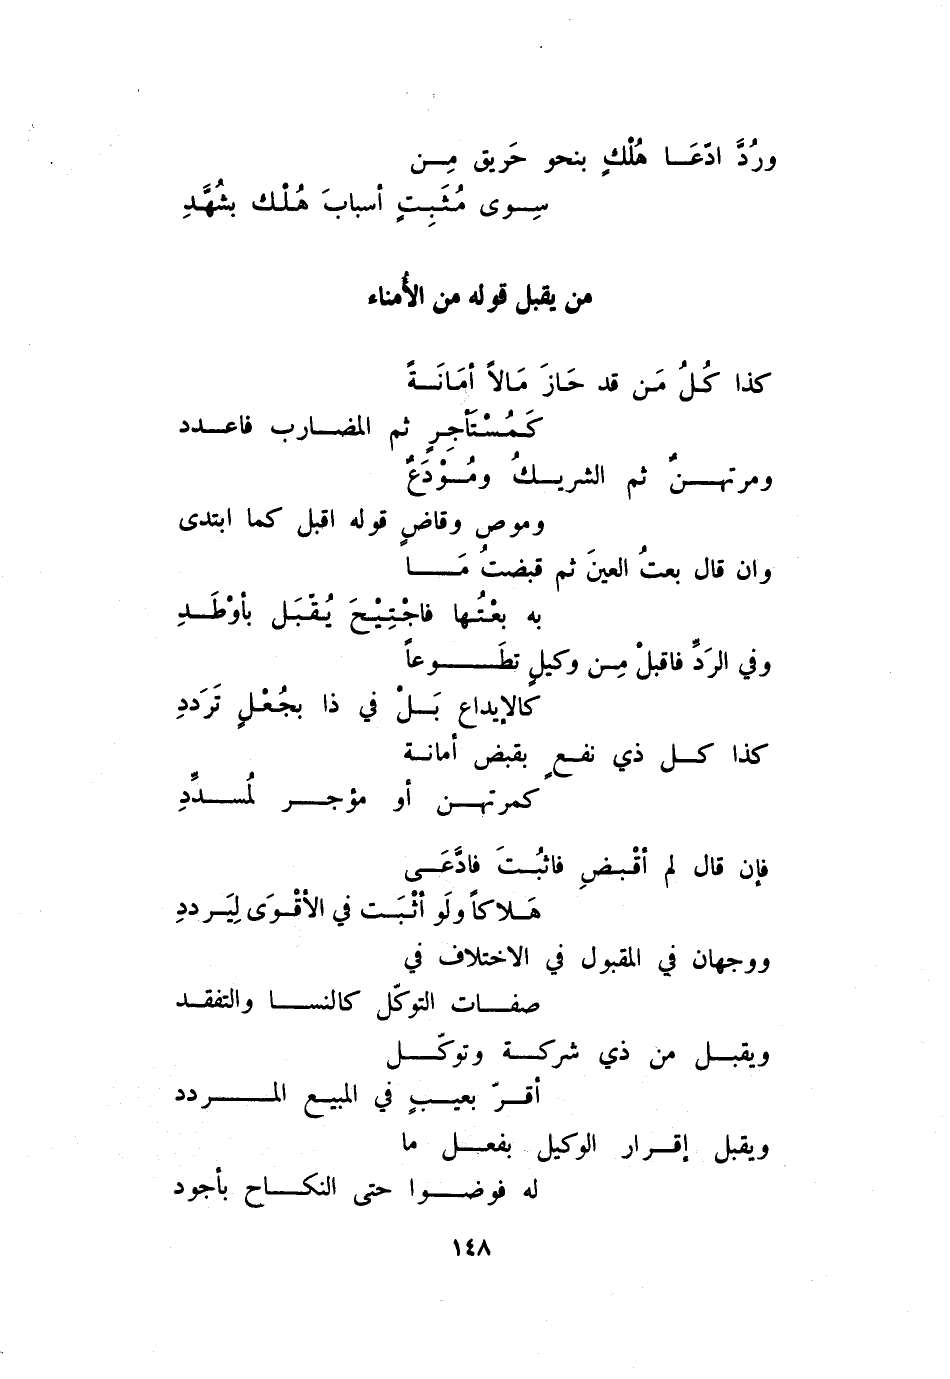 ورُدَّ ادّعَا هُلْكٍ بنحو حَريق مِن
سِوى مُثبِتٍ أسبابَ هُلْك بشُهَّدِ
من يقبل قوله من الأُمناء
كذا كُلُ مَن قد حَازَ مَالاً أمَانَةً
كَمُسْتَأجِرٍ ثم المضارب فاعدد
ومرتهنٌ ثم الشريكُ ومُوْدَعٌ
وموص وقاضٍ قوله اقبل كما ابتدى
وان قال بعتُ العينَ ثم قبضتُ مَا
به بعْتُها فاجْتِيْحَ يُقْبَل بأوْطَدِ
وفي الرَدِّ فاقبلْ مِن وكيلٍ تطَوعاً
كالإيداع بَلْ في ذا بجُعْلٍ تَرَددِ
كذا كل ذي نفعٍ بقبض أمانة
كمرتهن أو مؤجر لمُسدَّدِ
فإن قال لم أقْبضِ فاثبُتَ فادَّعَى
هَلاكاً ولَو أثْبَت في الأقْوَى لِيَرددِ
ووجهان في المقبول في الاختلاف في
صفات التوكّل كالنسا والتفقد
ويقبل من ذي شركة وتوكّل
أقرّ بعيبٍ في المبيع المردد
ويقبل إقرار الوكيل بفعل ما
له فوضوا حتى النكاح بأجود
١٤٨